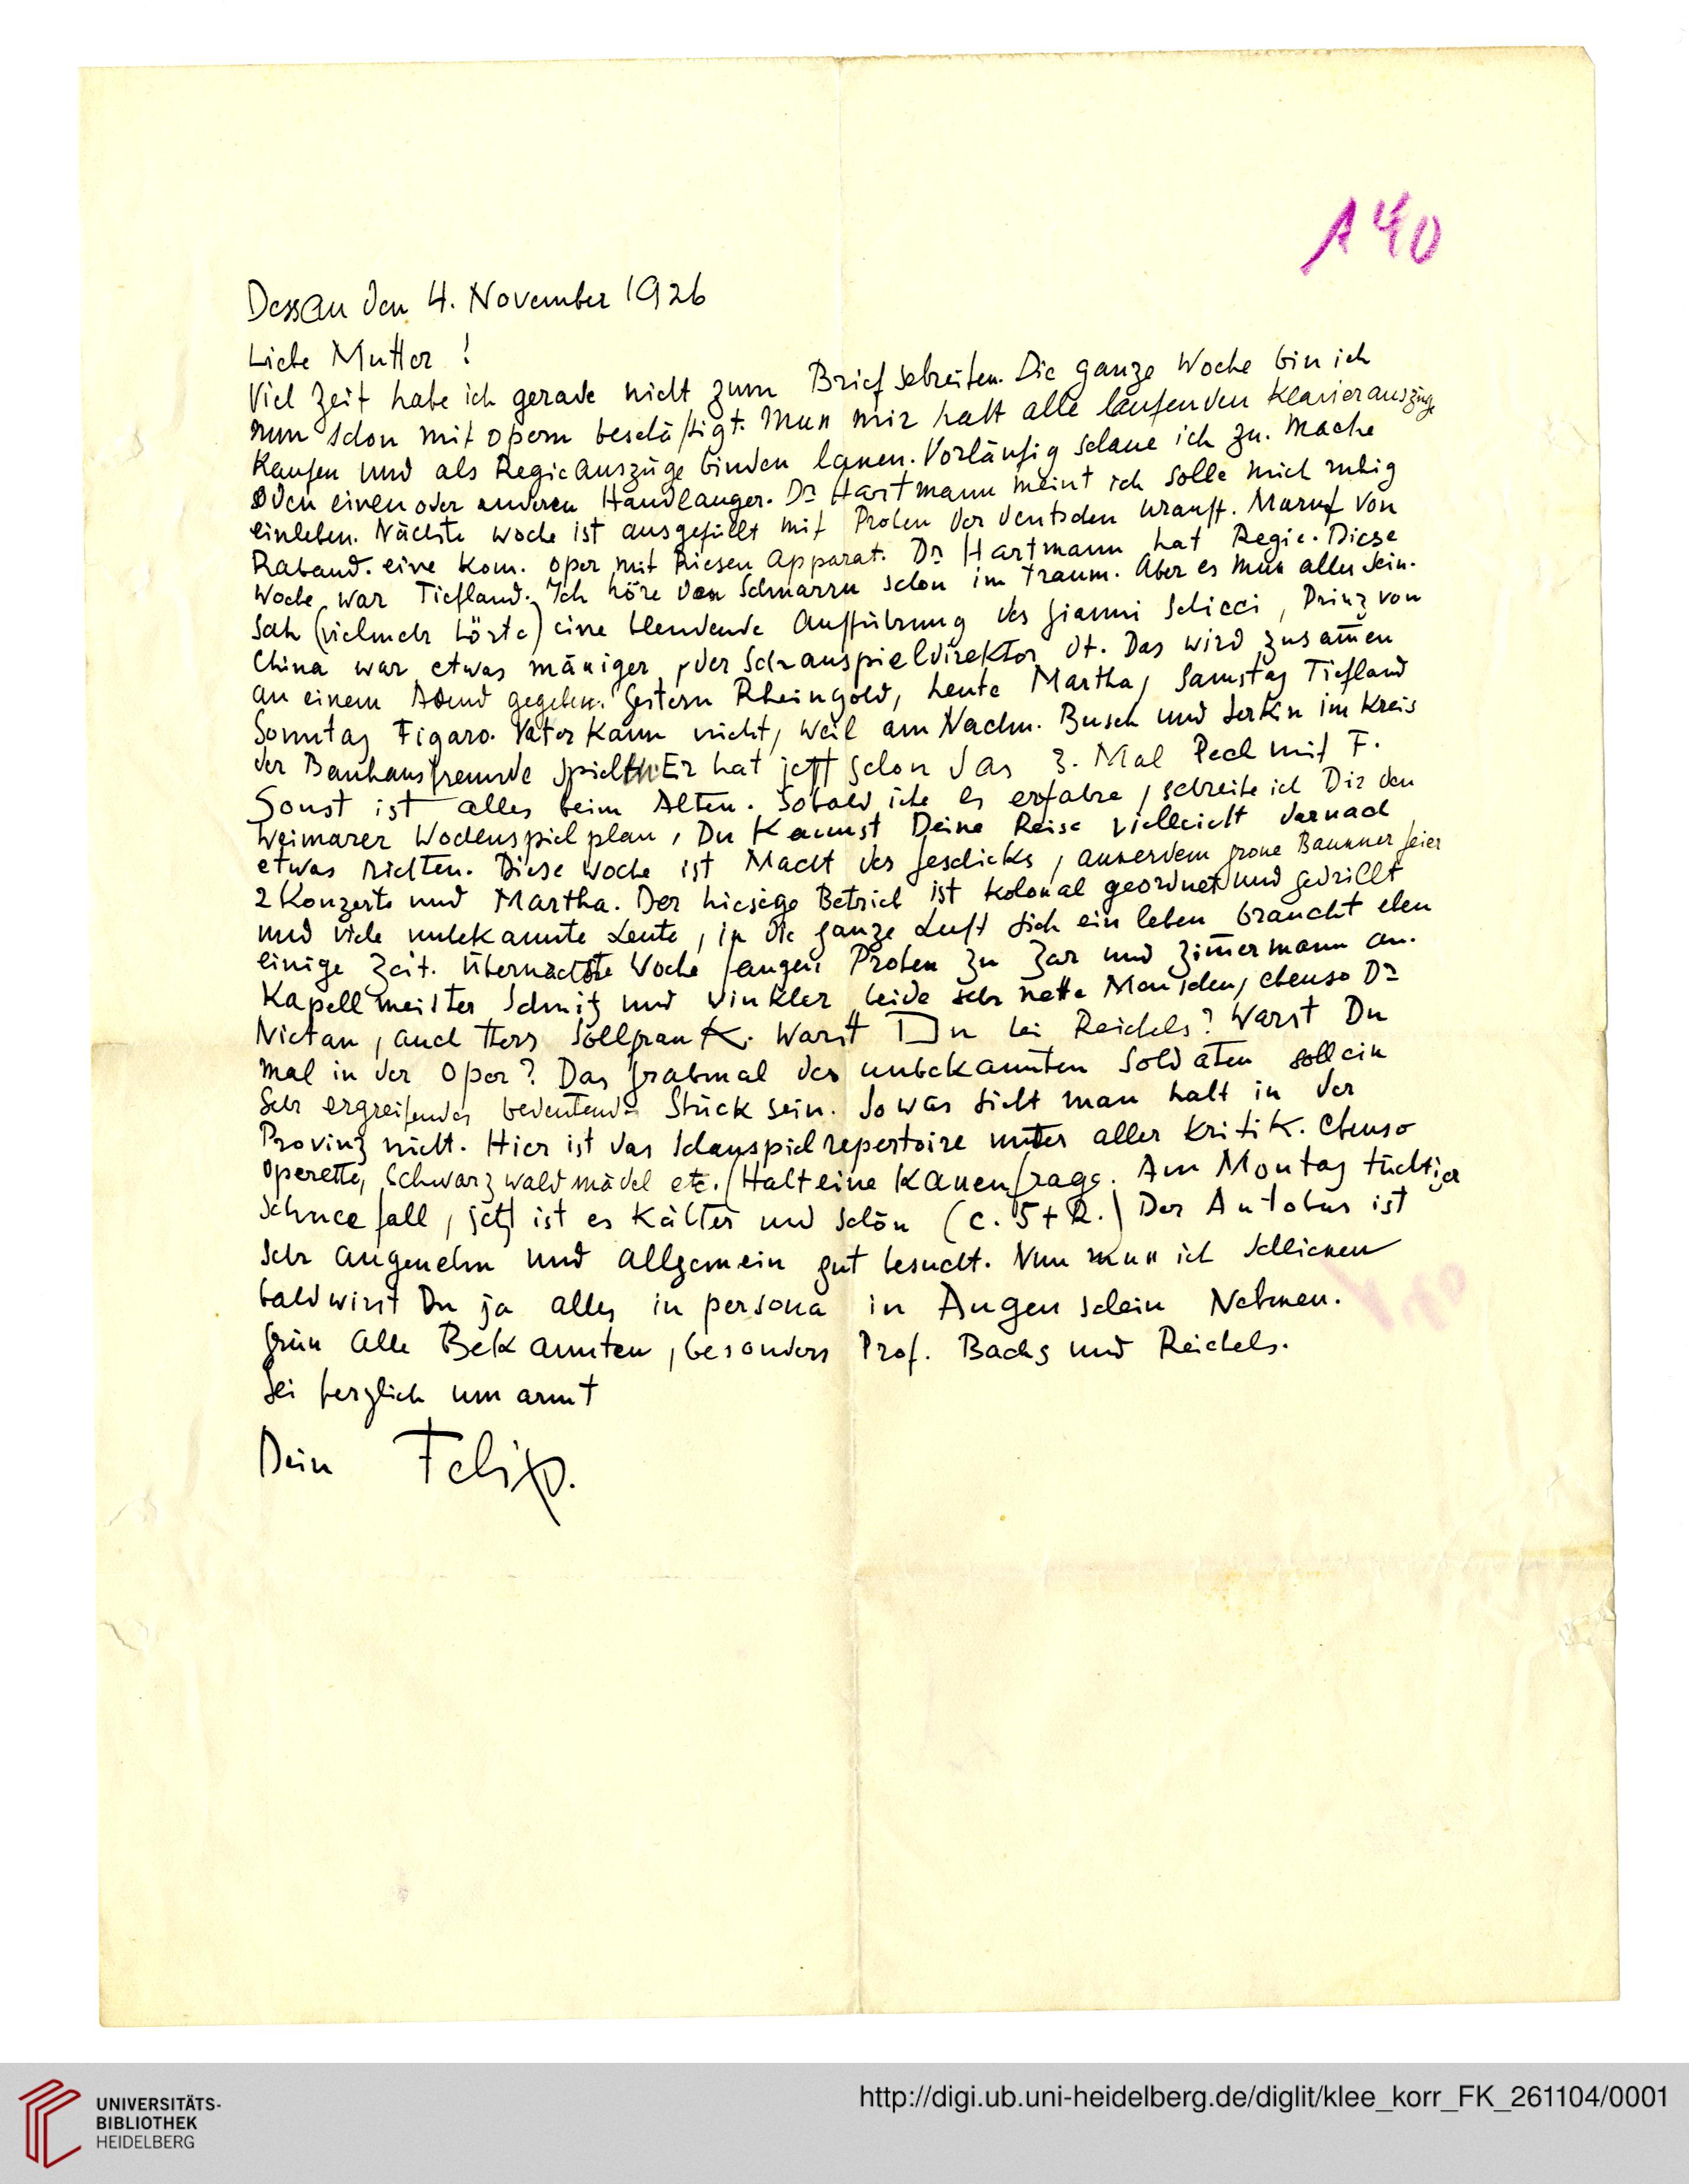 A 40
Dessau den 4. November 1926
Liebe Mutter !
Viel Zeit habe ich gerade nicht zum Briefschreiben. Die ganze Woche bin ich
nun schon mit Opern beschäftigt. Muss mir halt alle laufenden Klavierauszüge
kaufen und als Regieauszüge binden lassen. Vorläufig schaue ich zu. Mache
den einen oder anderen Handlanger. Dr Hartmann meint ich solle mich ruhig
einleben. Nächste Woche ist ausgefüllt mit Proben der deutschen Urauff. Maruf von
Rabaud. eine kom. Oper mit Riesen Apparat. Dr Hartmann hat Regie. Diese
Woche war Tiefland. Ich höre den Schnarrn schon im Traum. Aber es muss alles sein.
Sah (vielmehr hörte) eine blendende Aufführung des Gianni Schicci, Prinz von
China war etwas mässiger, der Schauspieldirektor dt. Das wird zusam̅en
an einem Abend gegeben. Gestern Rheingold, heute Martha, Samstag Tiefland
Sonntag Figaro. Vater kann nicht, weil am Nachm. Busch und Serkin im Kreis
der Bauhausfreunde spielen. Er hat jetzt schon das 3. Mal Pech mit F.
Sonst ist alles beim Alten. Sobald ich es erfahre, schreibe ich Dir den
Weimarer Wochenspielplan, Du kannst Deine Reise vielleicht darnach
etwas richten. Diese Woche ist Macht des Geschicks, ausserdem grosse feier
2 Konzerte und Martha. Der hiesige Betrieb ist kolossal geordnet und gedrillt
und viele unbekannte Leute, in die ganze Luft sich ein leben braucht eben
einige Zeit. Übernächste Woche fangen Proben zu Zar und Zim̅ermann an.
Kapellmeister Schmitz und Winkler beide sehr nette Menschen, ebenso Dr
Nietan, auch Herr Sollfrank. Warst Du bei Reichels? Warst Du
mal in der Oper? Das Grabmal des unbekannten Soldaten soll ein
sehr ergreifendes bedeutendes Stück sein. So was sieht man halt in der
Provinz nicht. Hier ist das Schauspielrepertoire unter aller Kritik. Ebenso
Operette, Schwarzwaldmädel etc. (Halt eine Kassenfrage. Am Montag tüchtiger
Schneefall, jetzt ist es kälter und schön (c. 5 + R.) Der Autobus ist
sehr angenehm und allgemein gut besucht. Nun muss ich schliessen
bald wirst Du ja alles in persona in Augenschein Nehmen.
Grüss alle Bekannten, besonders Prof. Bachs und Reichels.
Sei herzlich umarmt
Dein Felix.
UNIVERSITÄTS-
BIBLIOTHEK
HEIDELBERG
http://digi.ub.uni-heidelberg.de/diglit/klee_korr_FK_261104/0001